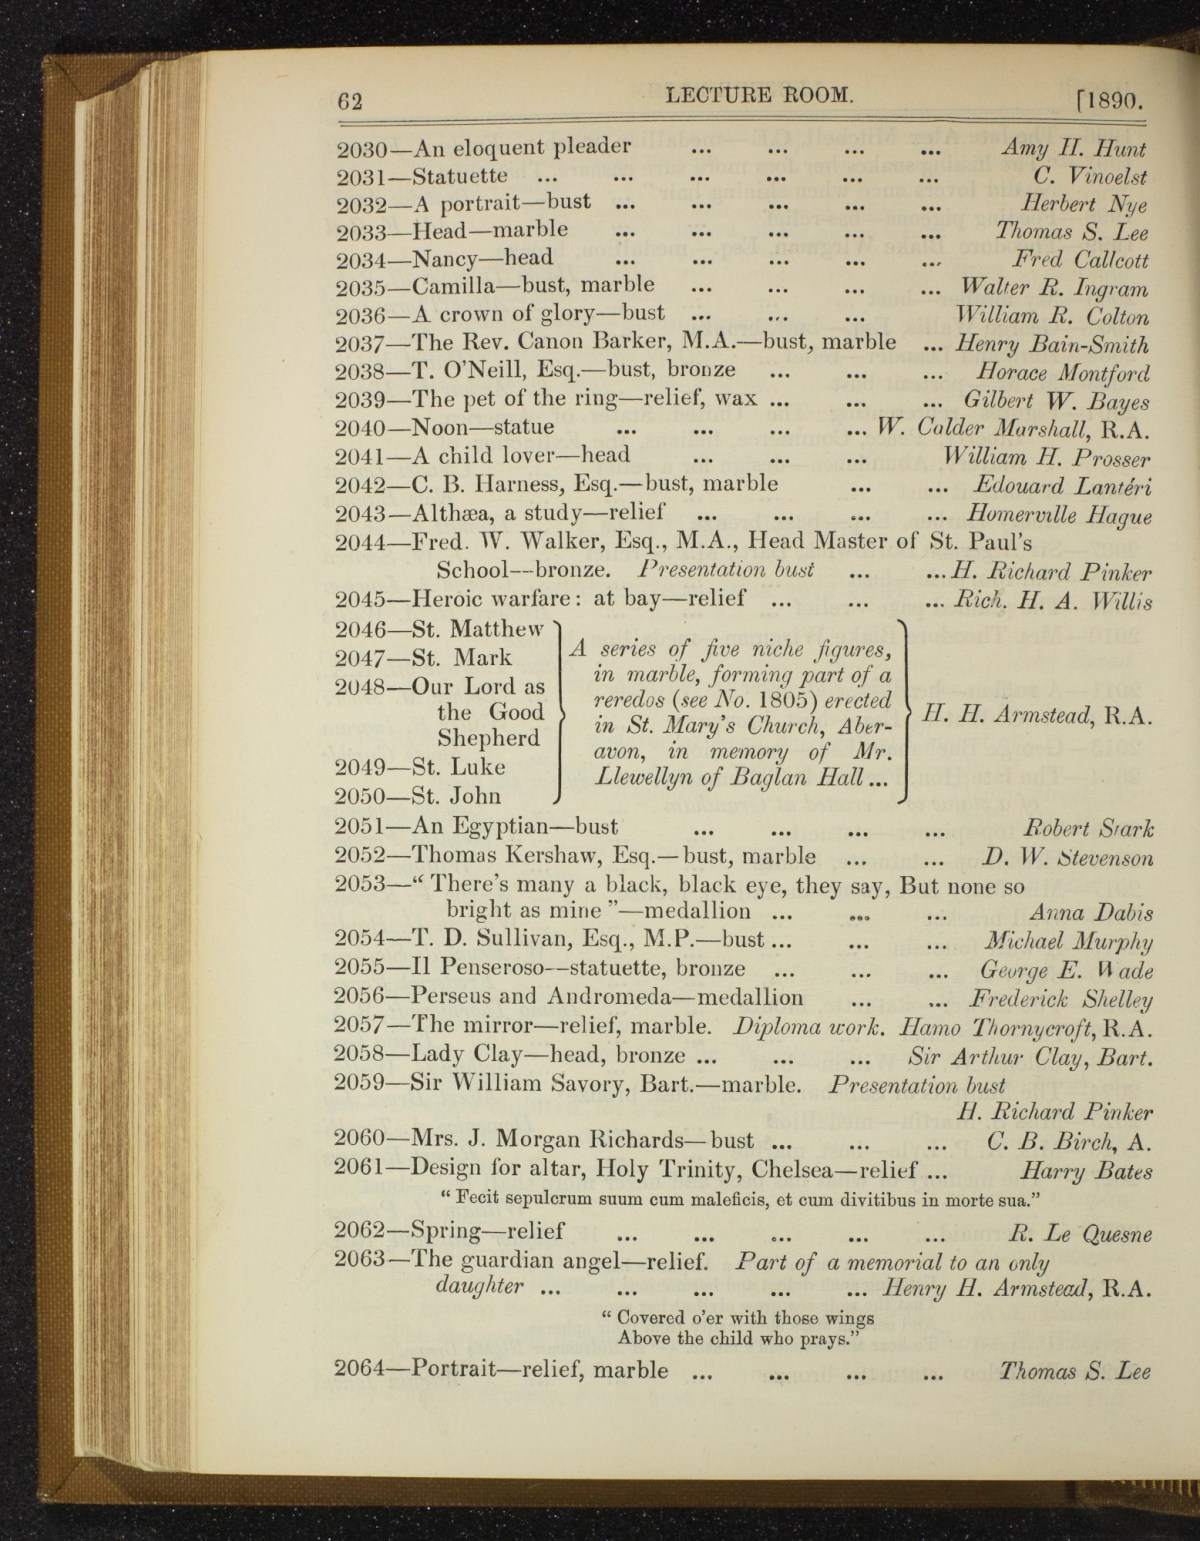 62 LECTURE ROOM. [1890.
2030—An eloquent pleader ... ... ... ... Amy H. Hunt
2031—Statuette ... ... ... ... ... ... C. Vinoelst
2032—A portrait—bust ... ... ... ... ... Herbert Nye
2033—Head—marble ... ... ... ... ... Thomas S. Lee
2034—Nancy—head ... ... ... ... ... Fred Callcott
2035—Camilla—bust, marble ... ... ... ... Walter R. Ingram
2036—A crown of glory—bust ... ... ... William R. Colton
2037—The Rev. Canon Barker, M.A.—bust, marble ... Henry Bain-Smith
2038—T. O'Neill, Esq.—bust, bronze ... ... ... Horace Montford
2039—The pet of the ring—relief, wax ... ... ... Gilbert W. Bayes
2040—Noon—statue ... ... ... ... W. Calder Marshall, R.A.
2041—A child lover—head ... ... ... William H. Prosser
2042—C. B. Harness, Esq.—bust, marble ... ... Edouard Lantéri
2043—Althæa, a study—relief ... ... ... ... Homerville Hague
2044—Fred. W. Walker, Esq., M.A., Head Master of St. Paul's
School—bronze. Presentation bust ... ... H. Richard Pinker
2045—Heroic warfare: at bay—relief ... ... ... Rich. H. A. Willis
2046—St. Matthew
2047—St. Mark
2048—Our Lord as
the Good
Shepherd
2049—St. Luke
2050—St. John
A series of five niche figures,
in marble, forming part of a
reredos (see No. 1805) erected
in St. Mary's Church, Aber-
avon, in memory of Mr.
Llewellyn of Baglan Hall ...
H. H. Armstead, R.A.
2051—An Egyptian—bust ... ... ... ... Robert Stark
2052—Thomas Kershaw, Esq.—bust, marble ... ... D. W. Stevenson
2053—" There's many a black, black eye, they say, But none so
bright as mine "—medallion ... ... ... Anna Dabis
2054—T. D. Sullivan, Esq., M.P.—bust ... ... ... Michael Murphy
2055—Il Penseroso—statuette, bronze ... ... ... George E. Wade
2056—Perseus and Andromeda—medallion ... ... Frederick Shelley
2057—The mirror—relief, marble. Diploma work. Hamo Thornycroft, R.A.
2058—Lady Clay—head, bronze ... ... ... Sir Arthur Clay, Bart.
2059—Sir William Savory, Bart.—marble. Presentation bust
H. Richard Pinker
2060—Mrs. J. Morgan Richards—bust ... ... ... C. B. Birch, A.
2061—Design for altar, Holy Trinity, Chelsea—relief ... Harry Bates
" Fecit sepulcrum suum cum maleficis, et cum divitibus in morte sua."
2062—Spring—relief ... ... ... ... ... R. Le Quesne
2063—The guardian angel—relief. Part of a memorial to an only
daughter ... ... ... ... ... Henry H. Armstead, R.A.
" Covered o'er with those wings
Above the child who prays."
2064—Portrait—relief, marble ... ... ... ... Thomas S. Lee